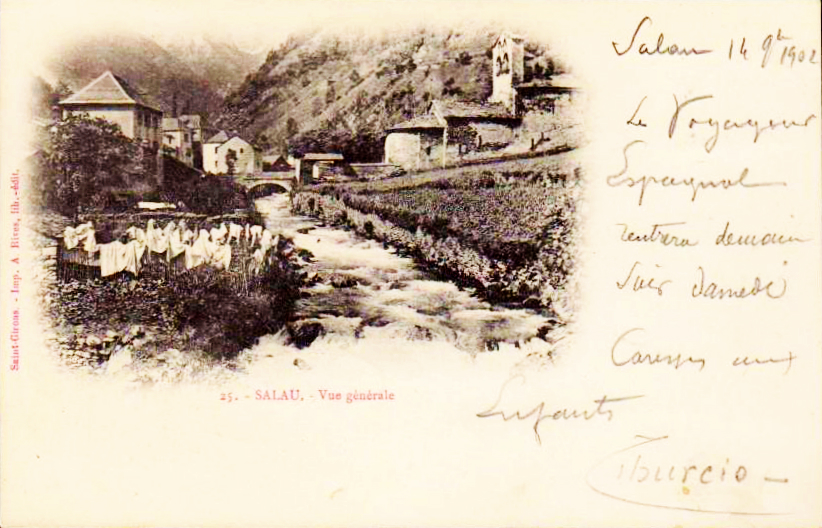 Salau 14 9bre 1902
Le Voyageur
Espagnol
rentrera demain
soir samedi
Caresses aux
Enfants
Tiburcio
25. - SALAU. - Vue générale
Saint-Girons. - Imp. A. Rives, lib.-édit.